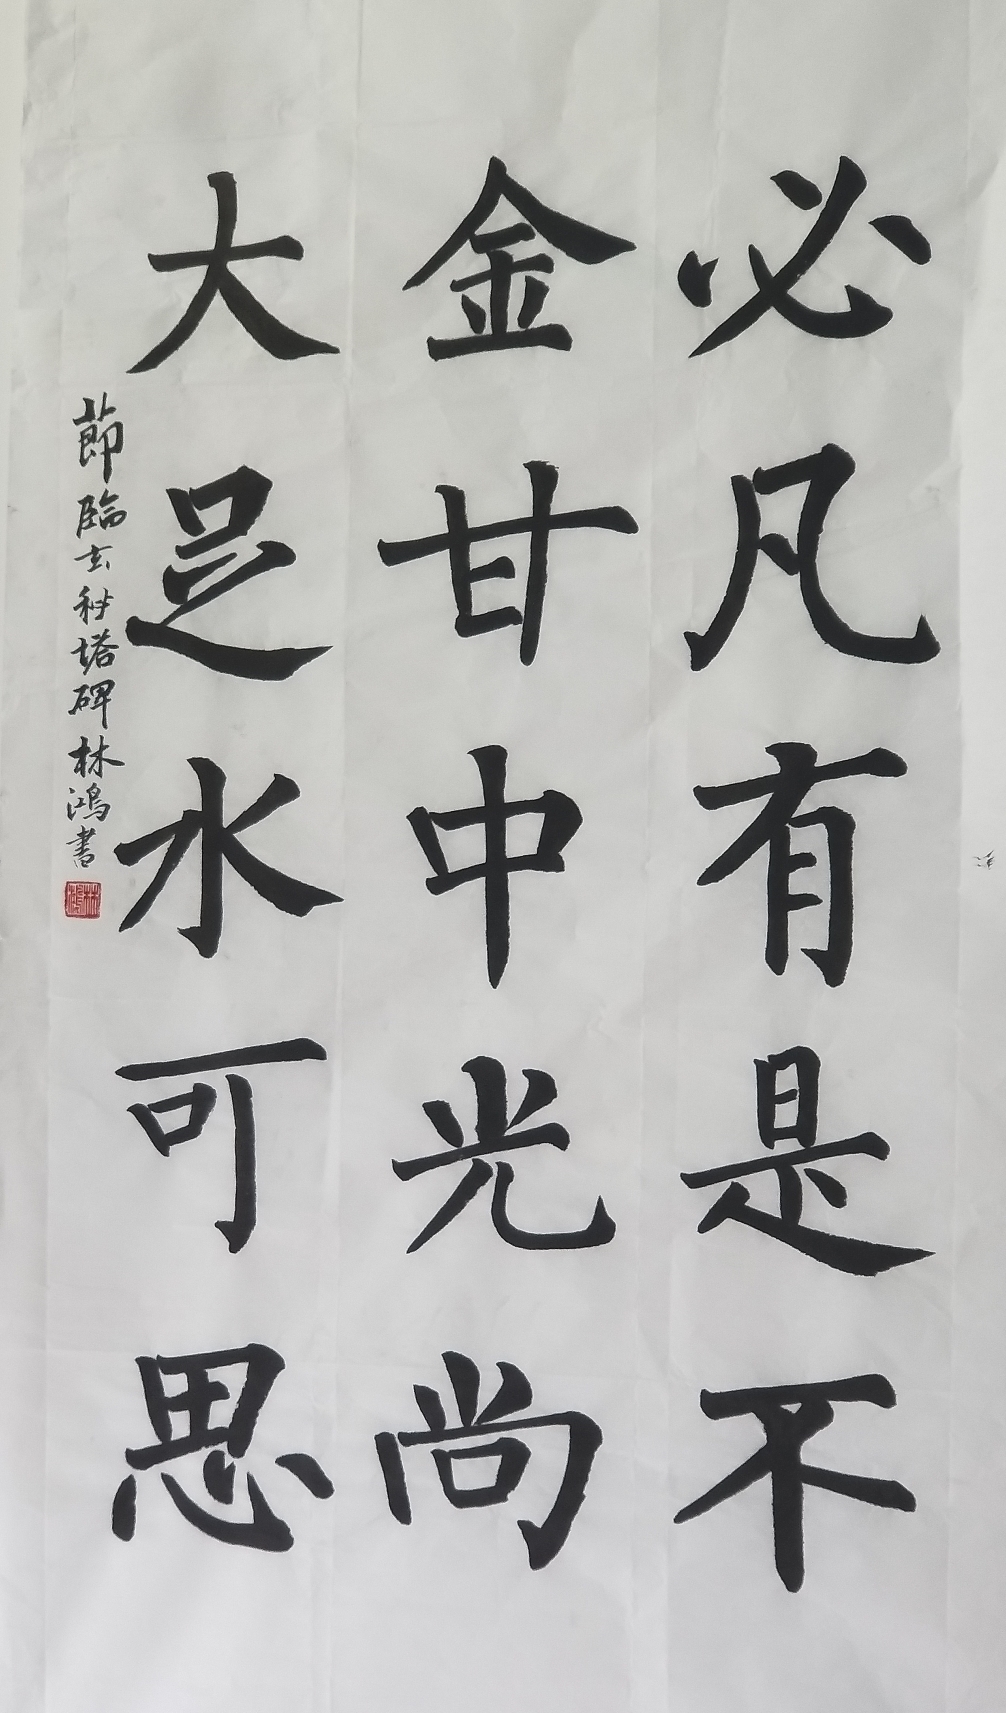 必凡有是不
金甘中光尚
大足水可思
節臨玄秘塔碑林鴻書
林鴻